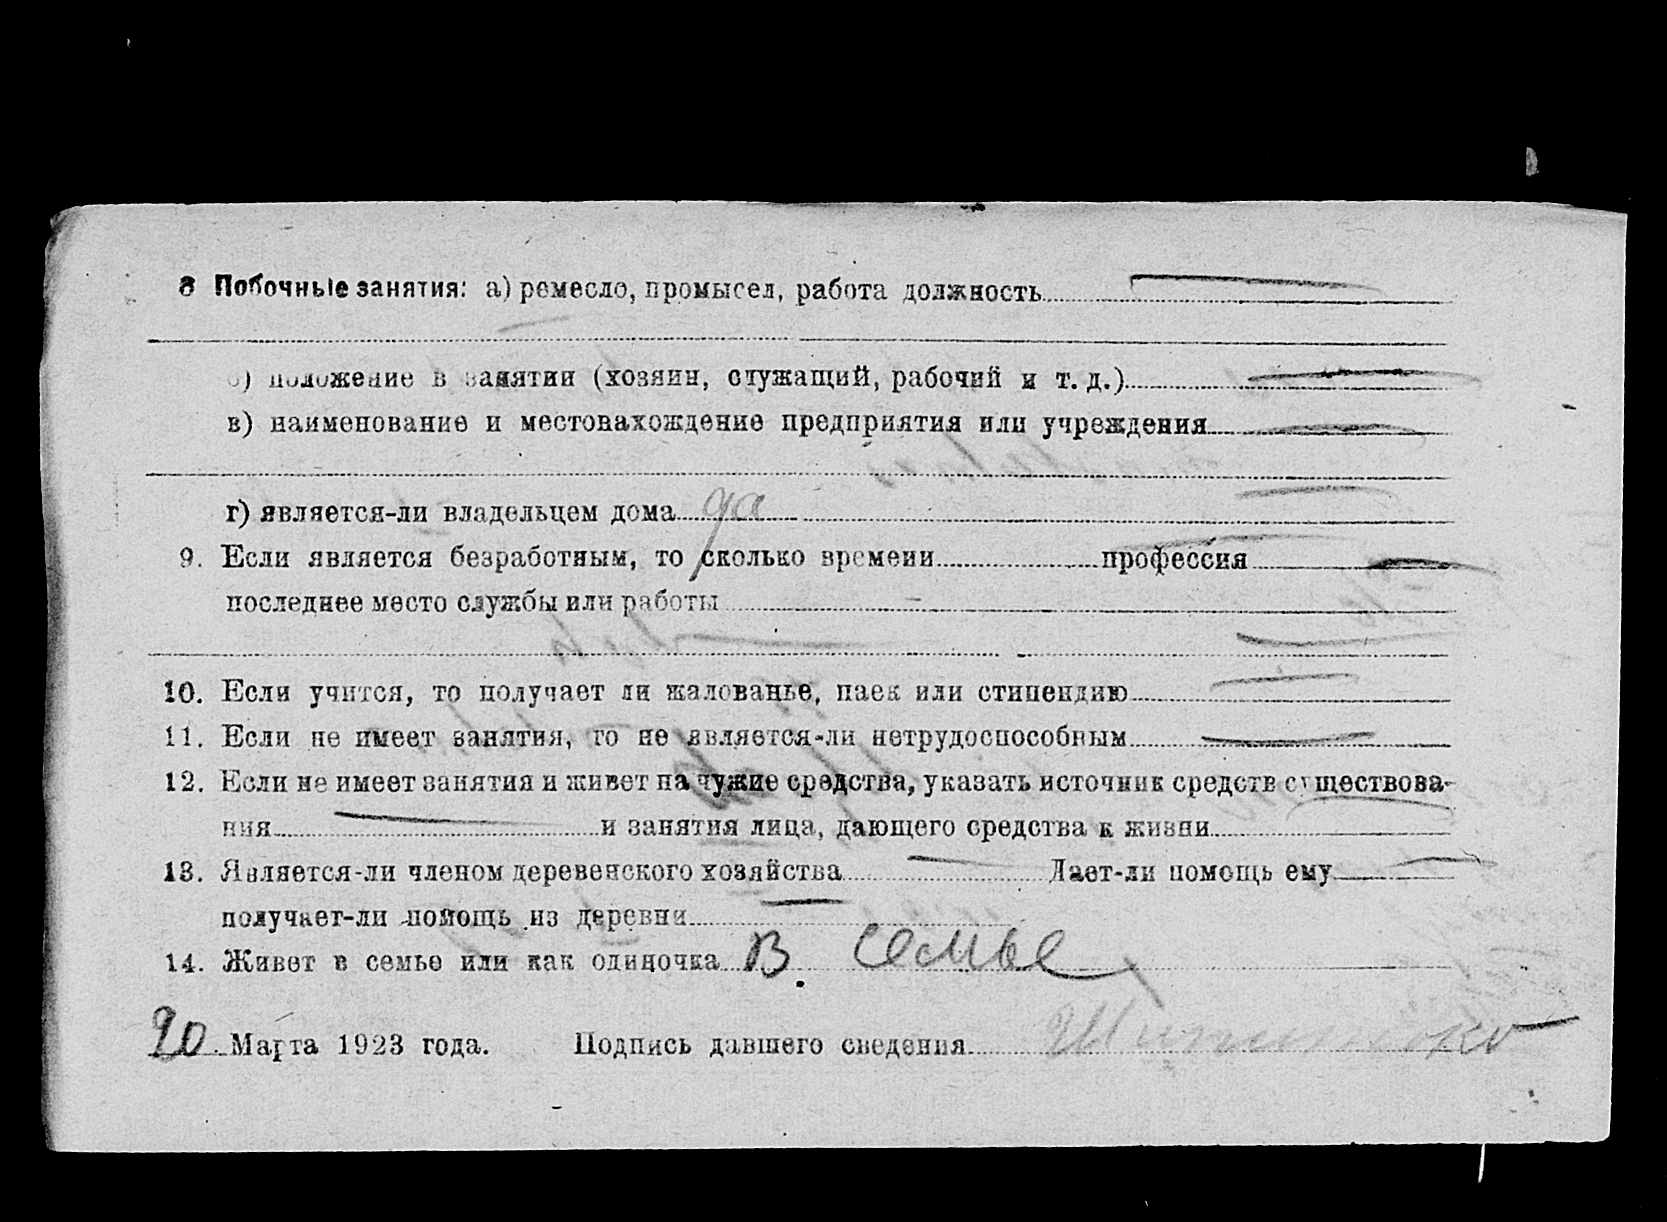 8 Побочные занятия: а) ремесло, промысел, работа должность
б) положение в занятии (хозяин, служащий, рабочий и т. д.)
в) наименование и местонахождение предприятия или учреждения
г) является-ли владельцем дома да
9. Если является безработным, то сколько времени профессия
последнее место службы или работы
10. Если учится, то получает ли жалованье, паек или стипендию
11. Если не имеет занятия, то не является-ли нетрудоспособным
12. Если не имеет занятия и живет на чужие средства, указать источник средств существова-
ния и занятия лица, дающего средства к жизни
13. Является-ли членом деревенского хозяйства Дает-ли помощь ему
получает-ли помощь из деревни
14. Живет в семье или как одиночка В семье
20 Марта 1923 года. Подпись давшего сведения